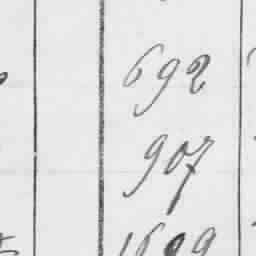 692
907
1609